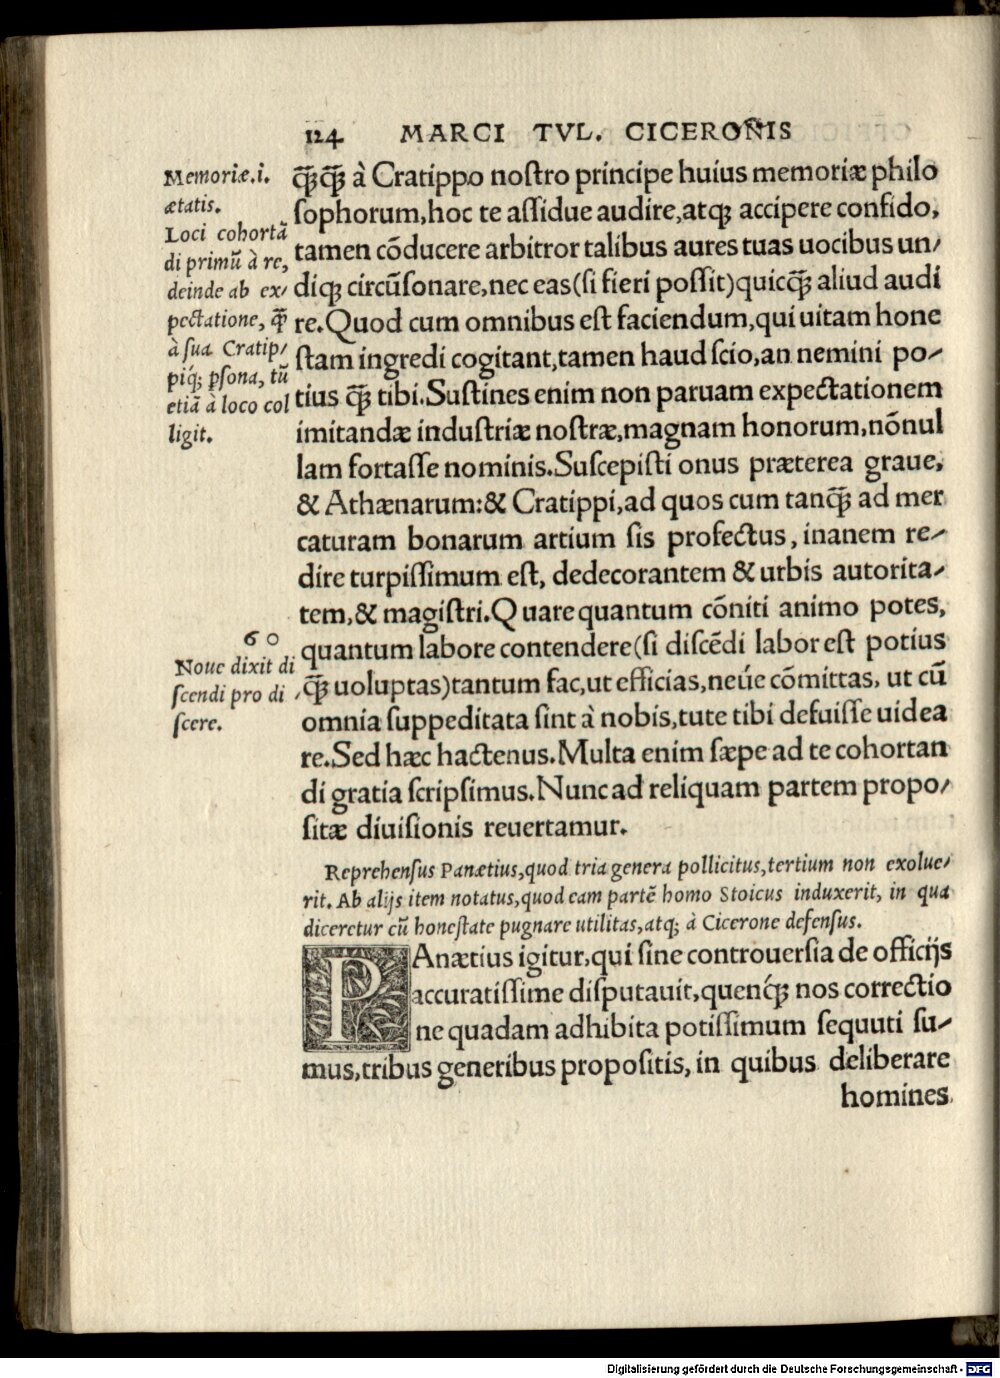 124 MARCI TVL. CICERONIS
Memoriæ.i.
ætatis.
Loci cohortã
di primũ à re,
deinde ab ex/
pectatione, q̃
à sua Cratip/
piq́; ꝑsona, tũ
etiã à loco col
ligit.
60
Noue dixit di
scendi pro di
scere.
q̃q̃ à Cratippo nostro principe huius memoriæ philo
sophorum,hoc te assidue audire,atq; accipere confido,
tamen cõducere arbitror talibus aures tuas uocibus un/
diq; circũsonare,nec eas(si fieri possit)quicq̃ aliud audi
re.Quod cum omnibus est faciendum,qui uitam hone
stam ingredi cogitant,tamen haud scio,an nemini po/
tius q̃ tibi.Sustines enim non paruam expectationem
imitandæ industriæ nostræ,magnam honorum,nõnul
lam fortasse nominis.Suscepisti onus præterea graue,
& Athænarum:& Cratippi,ad quos cum tanq̃ ad mer
caturam bonarum artium sis profectus, inanem re/
dire turpissimum est, dedecorantem & urbis autorita/
tem,& magistri.Quare quantum cõniti animo potes,
quantum labore contendere(si discẽdi labor est potius
q̃ uoluptas)tantum fac,ut efficias,neúe cõmittas, ut cũ
omnia suppeditata sint à nobis,tute tibi defuisse uidea
re.Sed hæc hactenus.Multa enim sæpe ad te cohortan
di gratia scripsimus.Nunc ad reliquam partem propo/
sitæ diuisionis reuertamur.
Reprehensus Panætius,quod tria genera pollicitus,tertium non exolue/
rit. Ab alijs item notatus,quod eam partẽ homo Stoicus induxerit, in qua
diceretur cũ honestate pugnare utilitas,atq; à Cicerone defensus.
PAnætius igitur,qui sine controuersia de officijs
accuratissime disputauit,quenq́; nos correctio
ne quadam adhibita potissimum sequuti su/
mus,tribus generibus propositis, in quibus deliberare
homines
Digitalisierung gefördert durch die Deutsche Forschungsgemeinschaft - DFG